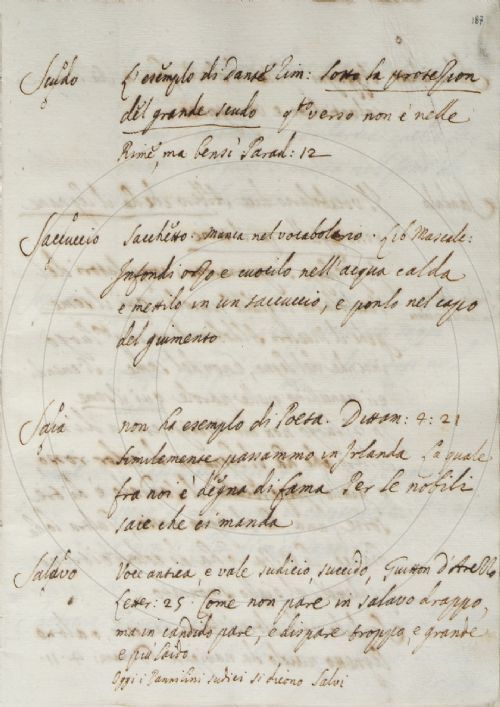 187
Scudo L'esemplo di Dante Rim: sotto la protession
del grande scudo qto verso non è nelle
Rime, ma bensì Parad: 12
Saccuccio Sacchetto. manca nel vocabolaro. Lib Mascalc:
Infondi orzo e cuocilo nell'acqua calda
e mettilo in un saccuccio, e ponlo nel capo
del giumento
Saia non ha esemplo di Poeta. Dittam: 4: 21
Similemente passammo in Irlanda La quale
fra noi è degna di fama Per le nobili
saie che ci manda
Salavo Voce antica, e vale sudicio, succido, Guitton d'Arezzo
Letter: 25. Come non pare in salavo drappo,
ma in candido pare, e dispare troppo, e grande
e più laido
Oggi i Pannilini sudici si dicono Salvi